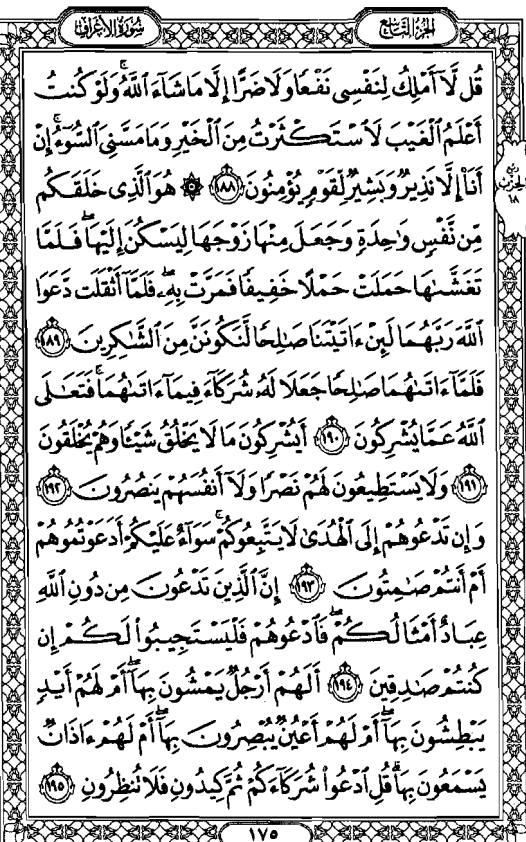 الجزء التاسع
سورة الأعراف
قُل لَّآ أَمْلِكُ لِنَفْسِى نَفْعًا وَلَا ضَرًّا إِلَّا مَا شَآءَ ٱللَّهُ ۚ وَلَوْ كُنتُ
أَعْلَمُ ٱلْغَيْبَ لَٱسْتَكْثَرْتُ مِنَ ٱلْخَيْرِ وَمَا مَسَّنِىَ ٱلسُّوٓءُ ۚ إِنْ
أَنَا۠ إِلَّا نَذِيرٌ وَبَشِيرٌ لِّقَوْمٍ يُؤْمِنُونَ ﴿١٨٨﴾ ۞ هُوَ ٱلَّذِى خَلَقَكُم
ربع
الحزب
١٨
مِّن نَّفْسٍ وَٰحِدَةٍ وَجَعَلَ مِنْهَا زَوْجَهَا لِيَسْكُنَ إِلَيْهَا ۖ فَلَمَّا
تَغَشَّىٰهَا حَمَلَتْ حَمْلًا خَفِيفًا فَمَرَّتْ بِهِۦ ۖ فَلَمَّآ أَثْقَلَت دَّعَوَا
ٱللَّهَ رَبَّهُمَا لَئِنْ ءَاتَيْتَنَا صَٰلِحًا لَّنَكُونَنَّ مِنَ ٱلشَّٰكِرِينَ ﴿١٨٩﴾
فَلَمَّآ ءَاتَىٰهُمَا صَٰلِحًا جَعَلَا لَهُۥ شُرَكَآءَ فِيمَآ ءَاتَىٰهُمَا ۚ فَتَعَٰلَى
ٱللَّهُ عَمَّا يُشْرِكُونَ ﴿١٩٠﴾ أَيُشْرِكُونَ مَا لَا يَخْلُقُ شَيْـًٔا وَهُمْ يُخْلَقُونَ
﴿١٩١﴾ وَلَا يَسْتَطِيعُونَ لَهُمْ نَصْرًا وَلَآ أَنفُسَهُمْ يَنصُرُونَ ﴿١٩٢﴾
وَإِن تَدْعُوهُمْ إِلَى ٱلْهُدَىٰ لَا يَتَّبِعُوكُمْ ۚ سَوَآءٌ عَلَيْكُمْ أَدَعَوْتُمُوهُمْ
أَمْ أَنتُمْ صَٰمِتُونَ ﴿١٩٣﴾ إِنَّ ٱلَّذِينَ تَدْعُونَ مِن دُونِ ٱللَّهِ
عِبَادٌ أَمْثَالُكُمْ ۖ فَٱدْعُوهُمْ فَلْيَسْتَجِيبُوا۟ لَكُمْ إِن
كُنتُمْ صَٰدِقِينَ ﴿١٩٤﴾ أَلَهُمْ أَرْجُلٌ يَمْشُونَ بِهَآ ۖ أَمْ لَهُمْ أَيْدٍ
يَبْطِشُونَ بِهَآ ۖ أَمْ لَهُمْ أَعْيُنٌ يُبْصِرُونَ بِهَآ ۖ أَمْ لَهُمْ ءَاذَانٌ
يَسْمَعُونَ بِهَا ۗ قُلِ ٱدْعُوا۟ شُرَكَآءَكُمْ ثُمَّ كِيدُونِ فَلَا تُنظِرُونِ ﴿١٩٥﴾
١٧٥